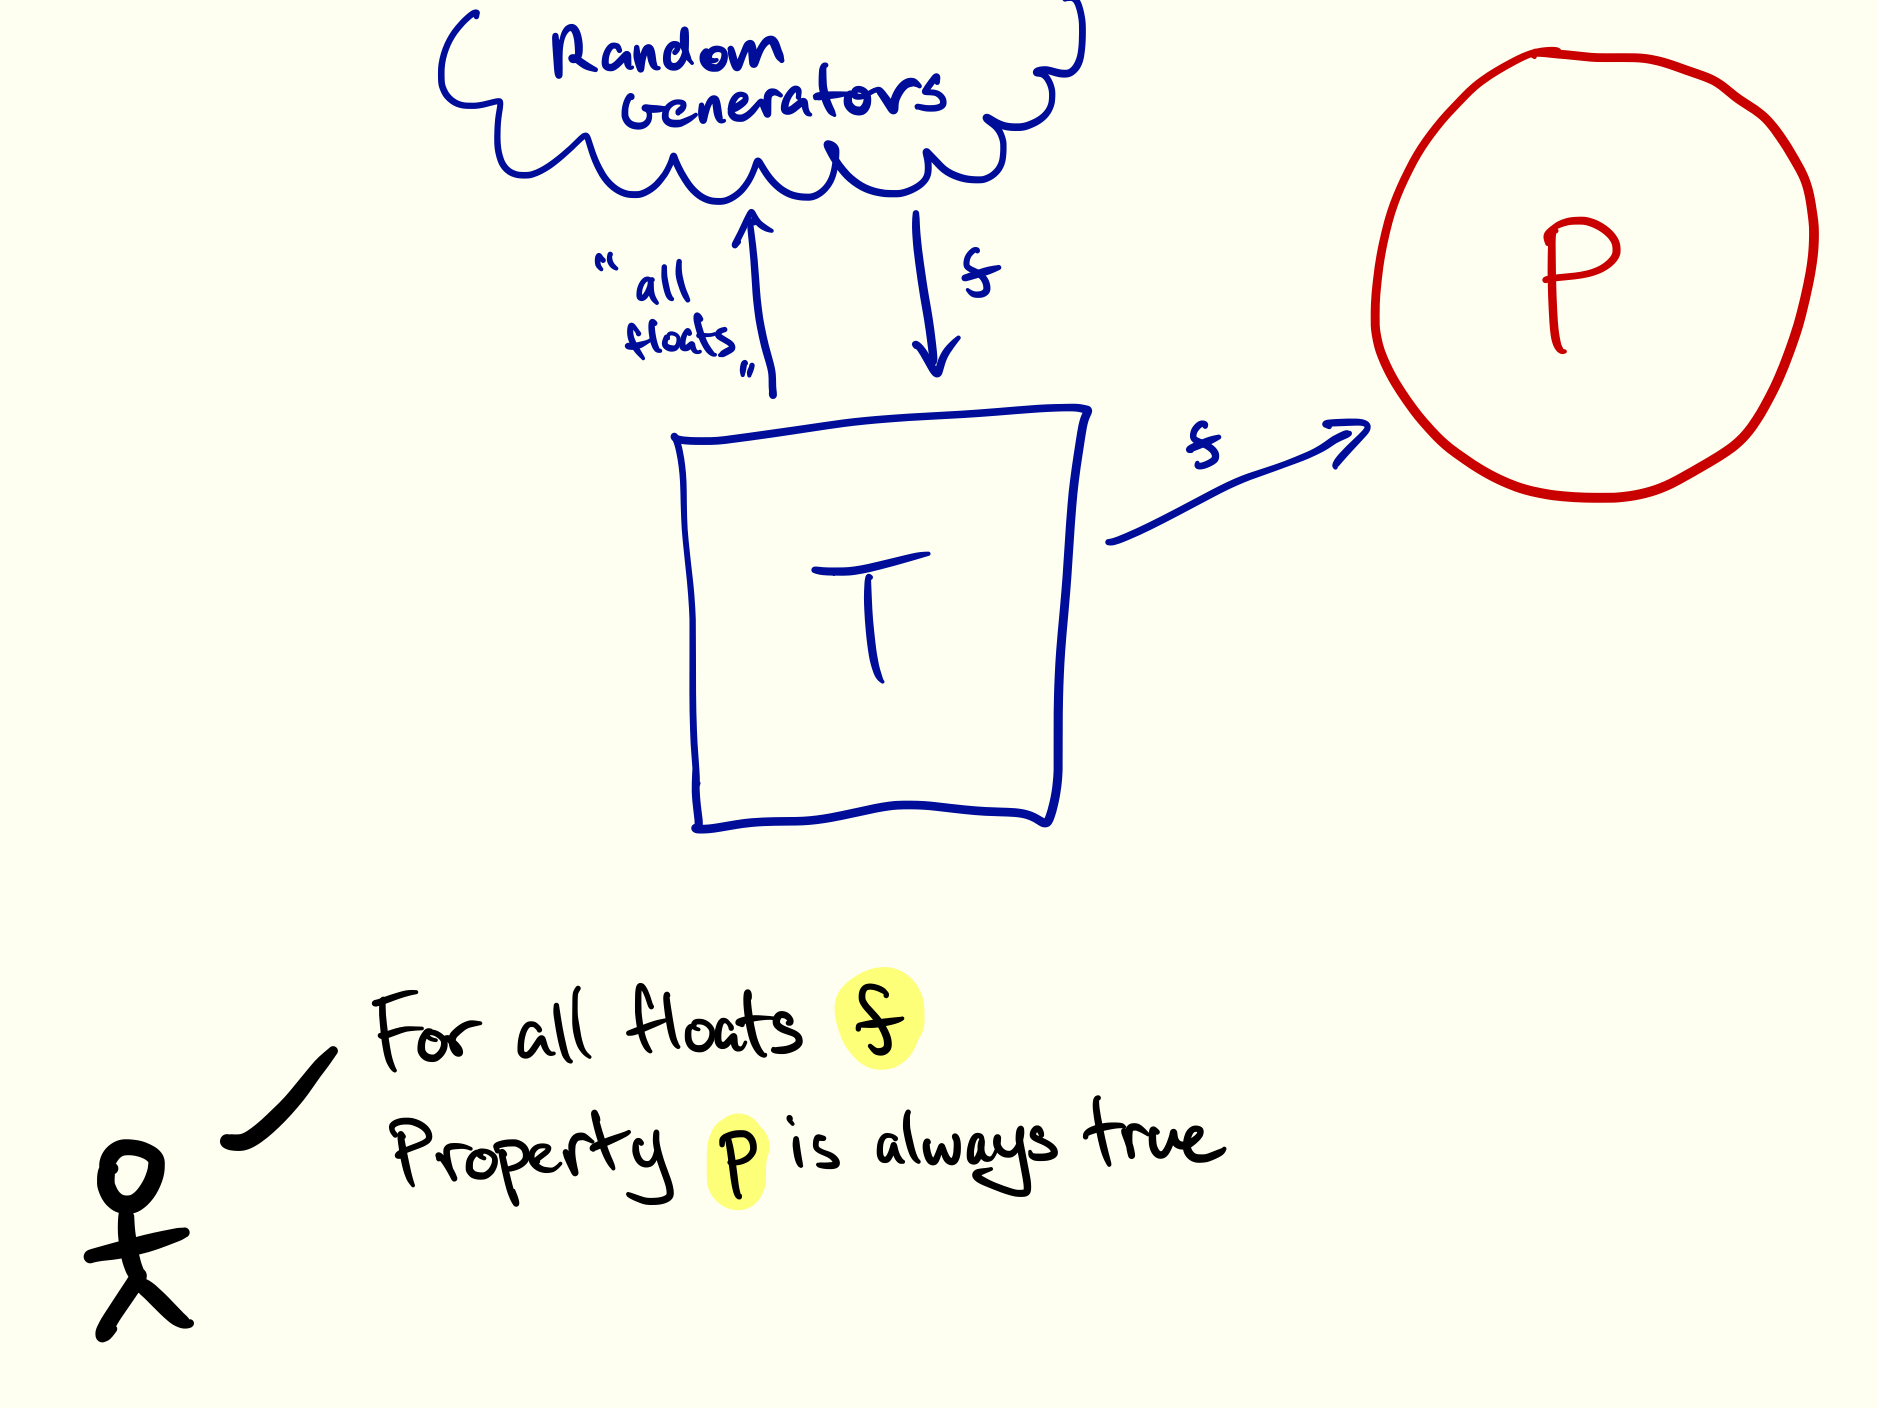 Random
Generators
"all
floats"
f
f
P
T
For all floats f
Property P is always true